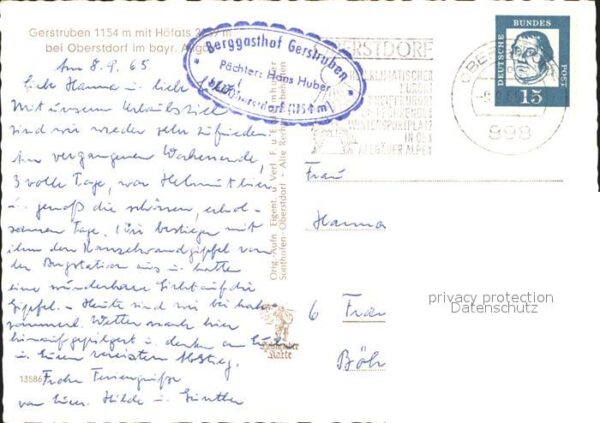 Gerstruben 1154 m mit Höfats
bei Oberstdorf im bayr.
Berggasthof Gerstruben
Pächter: Hans Huber
(1154 m)
OBERSTDORF
IN DEN
ALLGÄUER ALPEN
DEUTSCHE BUNDES POST
15
898
Am 8.9.65
Liebe Hanna u. liebe
Mit unserem Urlaubsziel
sind wir wieder sehr zufrieden.
Am vergangenen Wochenende,
3 volle Tage, war Helmut hier
u. genoß die schönen, erhol-
samen Tage. Wir bestiegen mit
ihm den Kanzelwandgipfel von
der Bergstation aus u. hatten
eine wunderbare Sicht auf die
Gipfel. – Heute sind wir bei
Wetter nach hier
u. denken an Euch
u. Euren
Frohe Feriengrüße
von Euren Hilde u. Günther
13586
Orig.-Aufn. Eigent. u. Verl. F. u. E.
Sonthofen-Oberstdorf - Alle Rechte vorbehalten
Karte
Frau
Hanna
6 Fran
Böh
privacy protection
Datenschutz